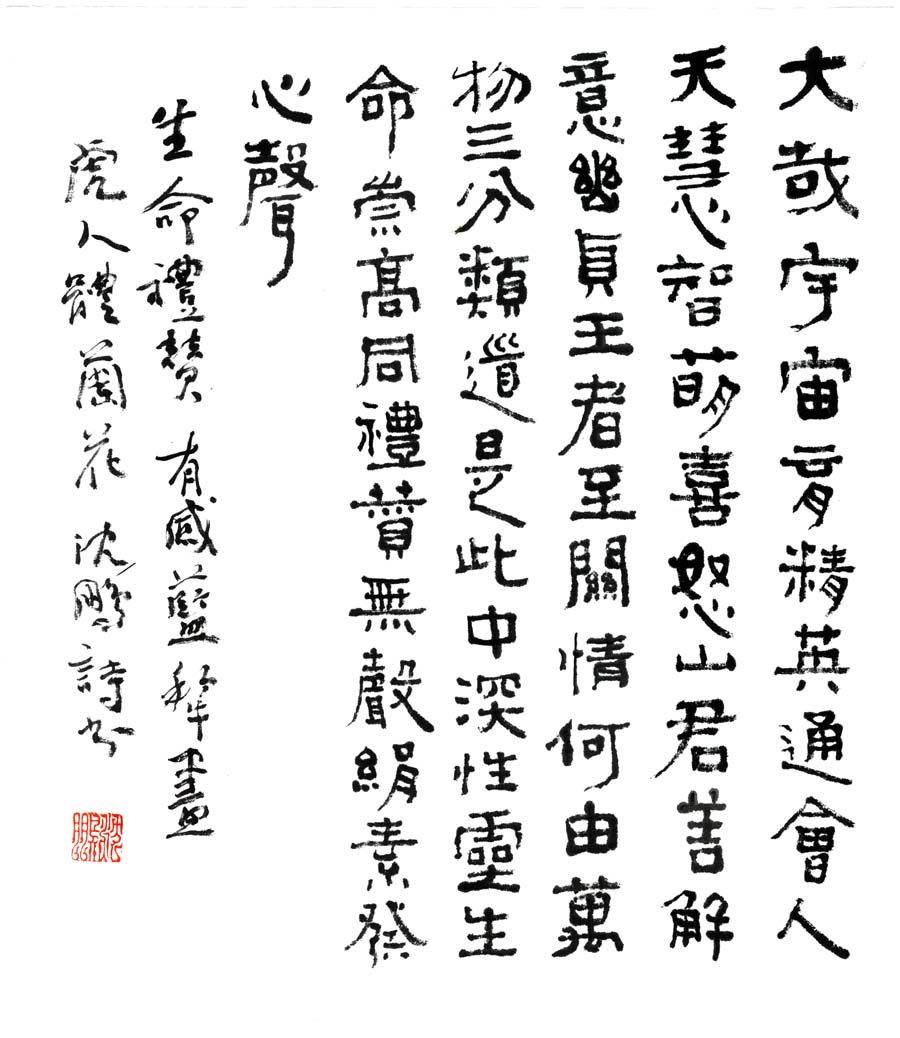 大哉宇宙育精英通會人
天慧智萌喜怒山君善解
意幽貞王者至關情何由萬
物三分類道是此中深性靈生
命崇高同禮贊無聲絹素發
心聲
生命禮贊有感藍犂畫
虎人體蘭花沈鵬詩書
沈鵬